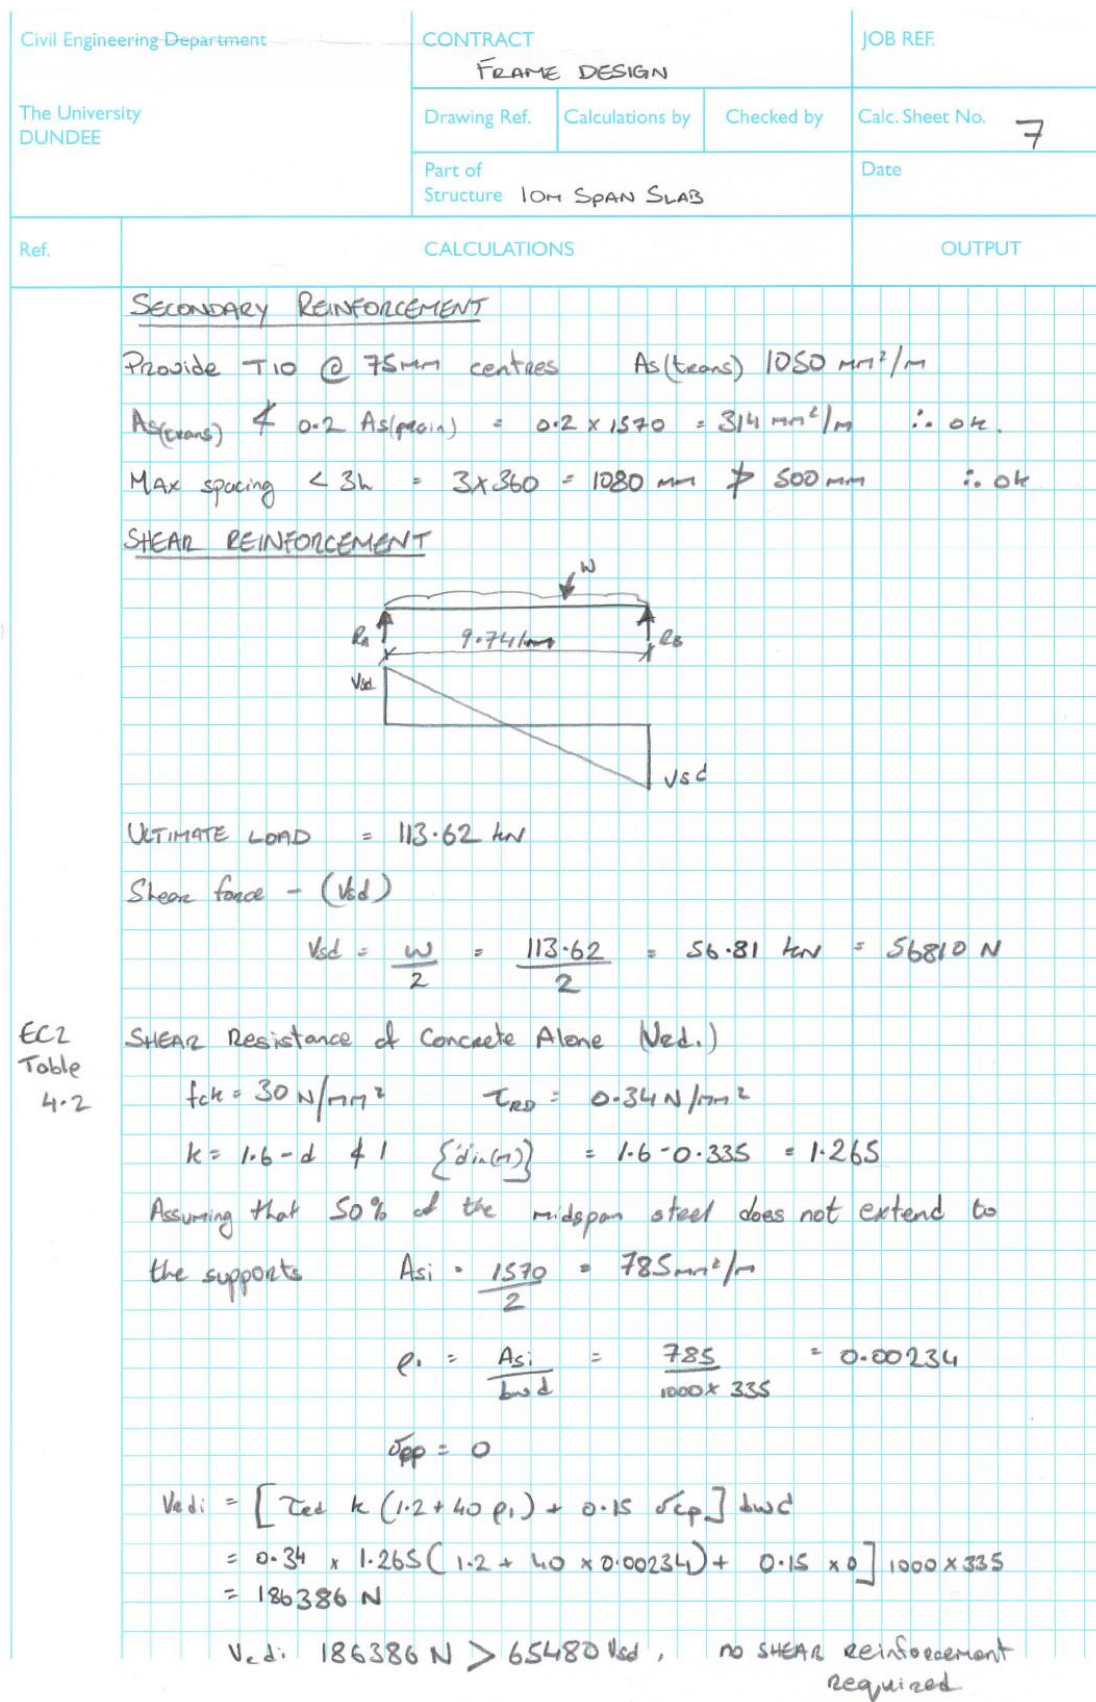 Civil Engineering Department
CONTRACT
FRAME DESIGN
JOB REF.
The University
DUNDEE
Drawing Ref.
Calculations by
Checked by
Calc. Sheet No. 7
Part of
Structure 10m SPAN SLAB
Date
Ref.
CALCULATIONS
OUTPUT
SECONDARY REINFORCEMENT
Provide T10 @ 75mm centres As(trans) 1050 mm²/m
As(trans) ≮ 0.2 As(main) = 0.2 x 1570 = 314 mm²/m ∴ ok.
MAX spacing < 3h = 3x360 = 1080 mm ≯ 500mm ∴ ok
SHEAR REINFORCEMENT
W
RA 9.741m RB
Vsd
Vsd
ULTIMATE LOAD = 113.62 kN
Shear force - (Vsd)
Vsd = W/2 = 113.62/2 = 56.81 kN = 56810 N
EC2
Table
4.2
SHEAR Resistance of Concrete Alone (VRd.)
fck = 30 N/mm² τRD = 0.34 N/mm²
k = 1.6 - d ≮ 1 {d in (m)} = 1.6 - 0.335 = 1.265
Assuming that 50% of the midspan steel does not extend to
the supports Asi = 1570/2 = 785mm²/m
ρ1 = Asi/bwd = 785/1000 x 335 = 0.00234
σcp = 0
VRdi = [τRd k (1.2 + 40 ρ1) + 0.15 σcp] bwd
= 0.34 x 1.265 (1.2 + 40 x 0.00234) + 0.15 x 0] 1000 x 335
= 186386 N
VRdi 186386 N > 65480 Vsd, no SHEAR reinforcement
required